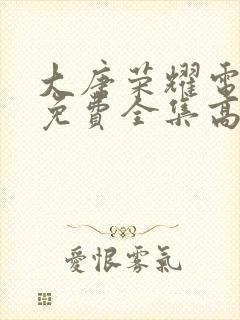 大唐荣耀電
免費全集高
愛恨雾氣